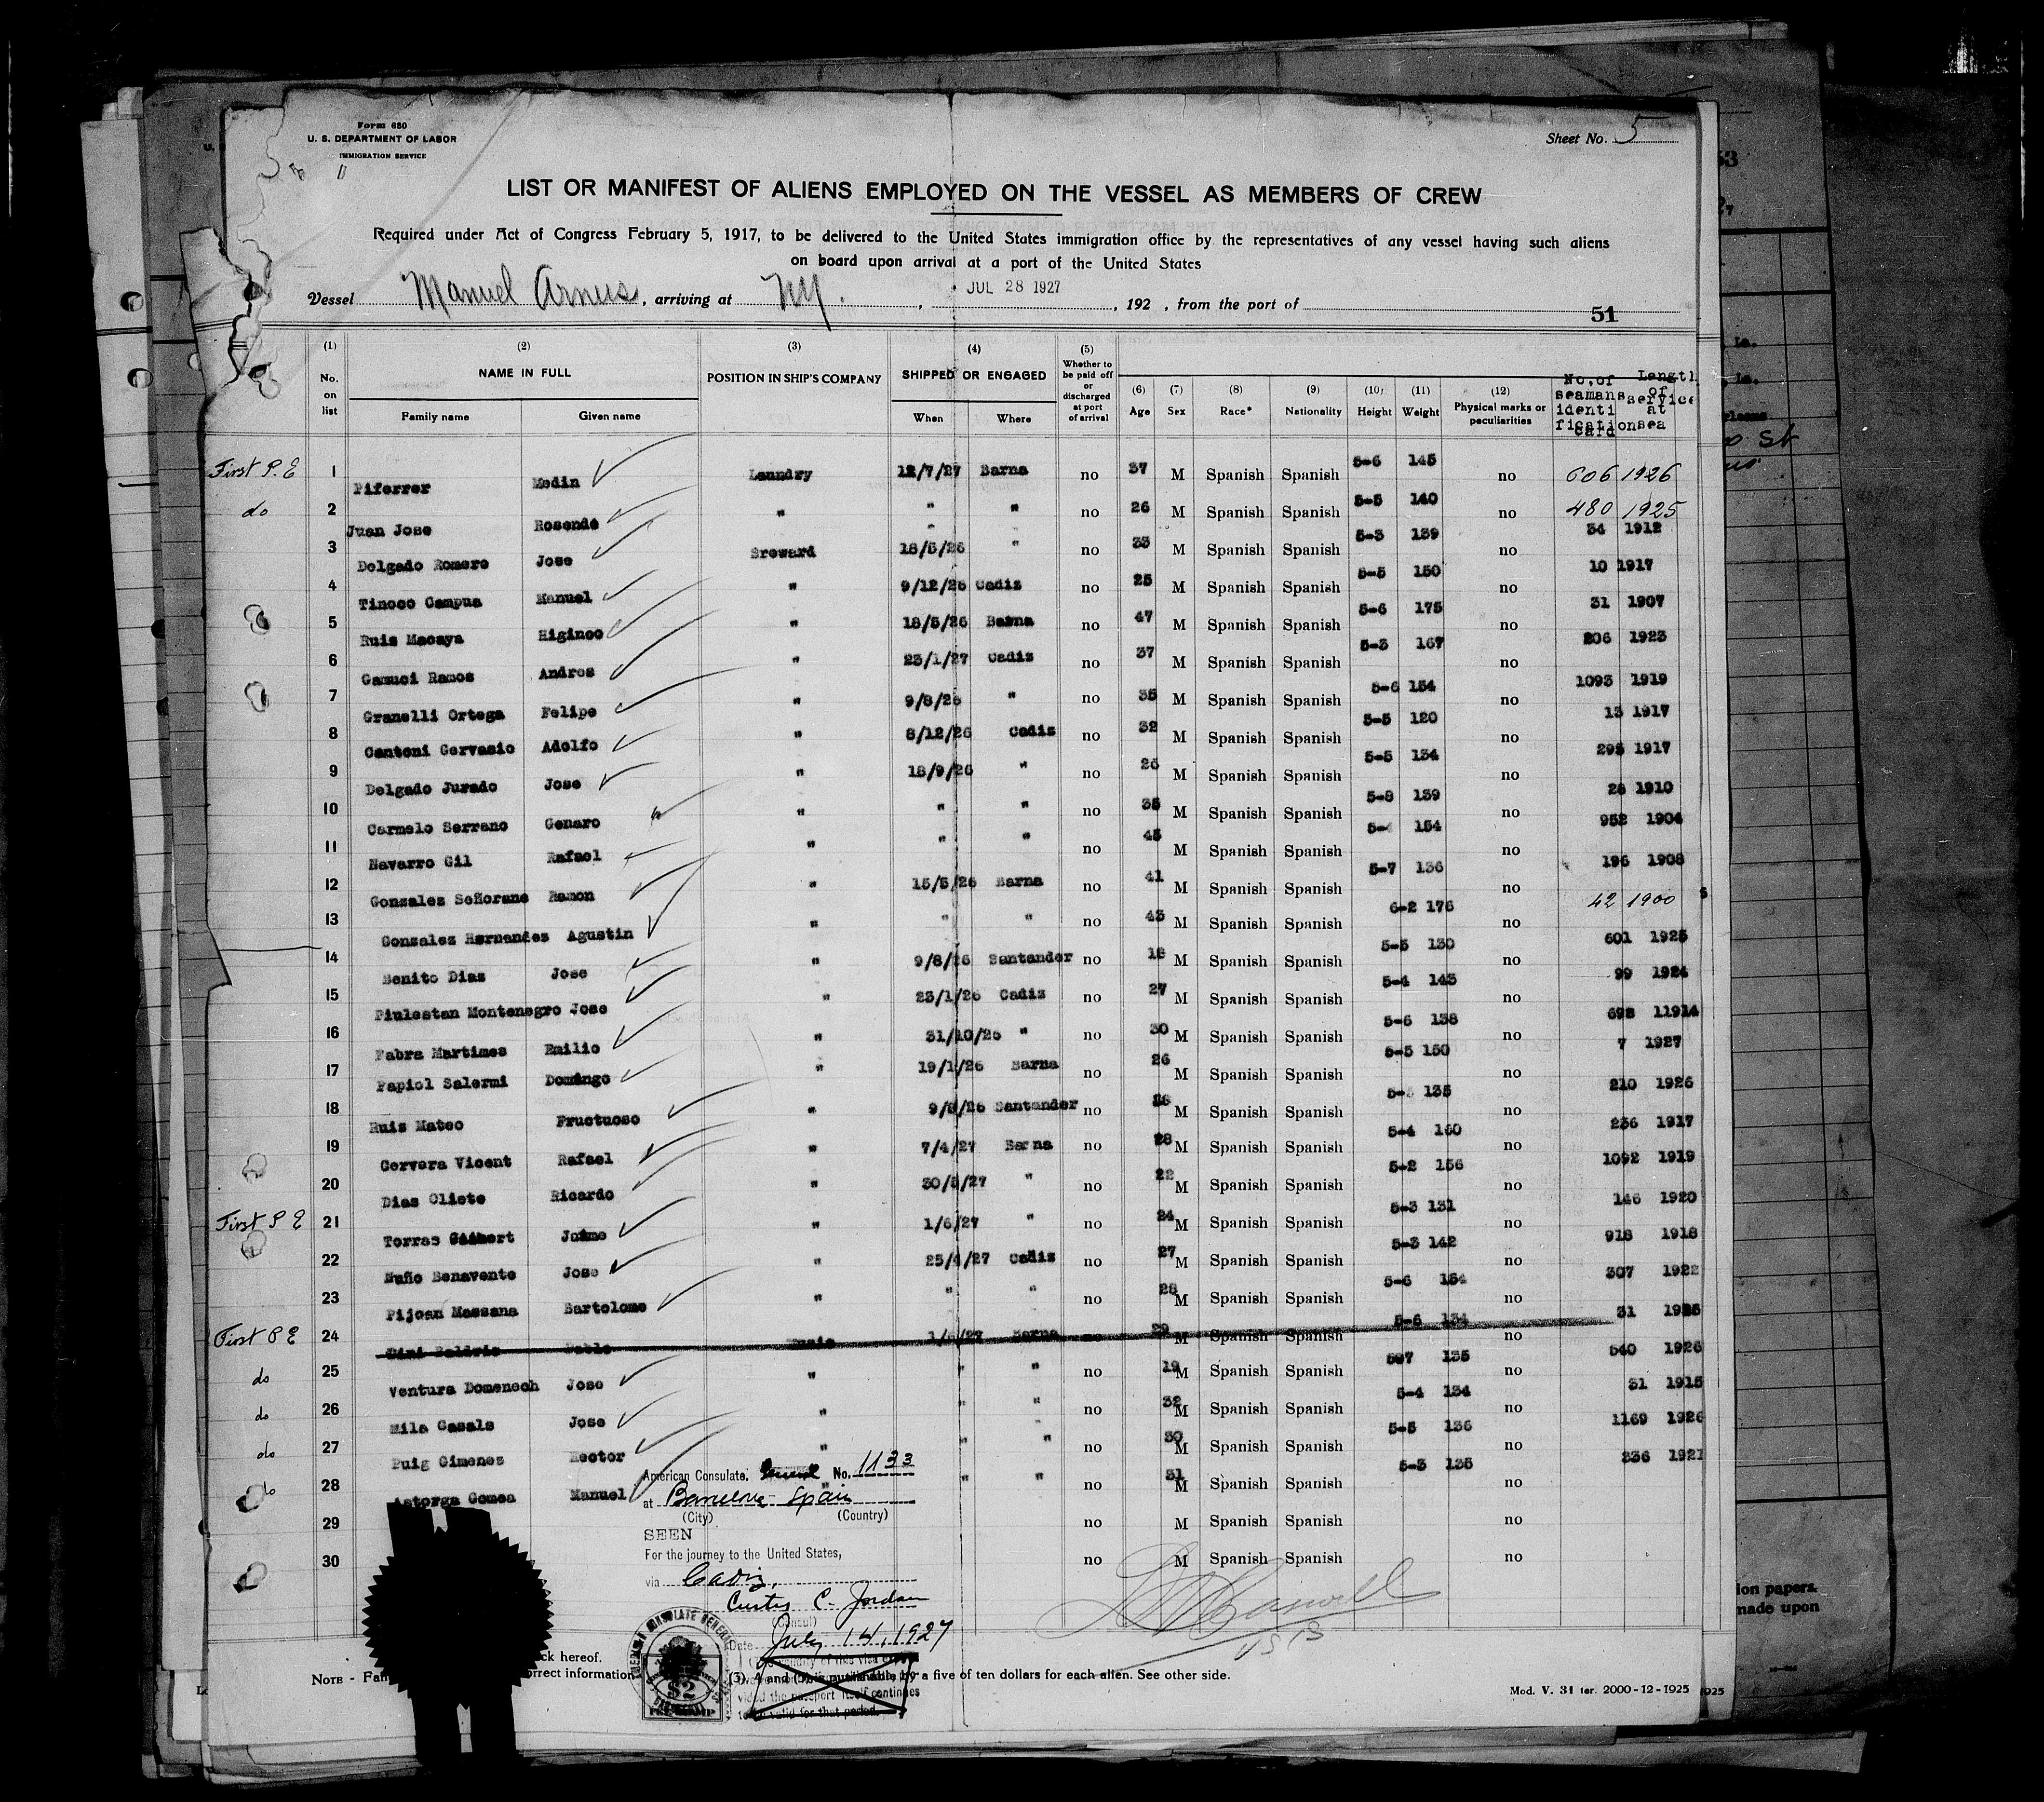 Form 680
U. S. DEPARTMENT OF LABOR
IMMIGRATION SERVICE
Sheet No. 5
LIST OR MANIFEST OF ALIENS EMPLOYED ON THE VESSEL AS MEMBERS OF CREW
Required under Act of Congress February 5, 1917, to be delivered to the United States immigration office by the representatives of any vessel having such aliens
on board upon arrival at a port of the United States
Vessel Manuel Arnus, arriving at NY. , JUL 28 1927, 192 , from the port of
51
(1) (2) (3) (4) (5) (6) (7) (8) (9) (10) (11) (12)
No. on list NAME IN FULL Family name Given name POSITION IN SHIP'S COMPANY SHIPPED OR ENGAGED When Where Whether to be paid off or discharged at port of arrival Age Sex Race* Nationality Height Weight Physical marks or peculiarities No, of seamans identification card Length of service at sea
First P. E 1 Piferrer Medin Laundry 12/7/27 Barna no 37 M Spanish Spanish 5-6 145 no 606 1926
do 2 Juan Jose Rosende " " " no 26 M Spanish Spanish 5-5 140 no 480 1925
3 Delgado Romero Jose Sreward 18/5/26 " no 33 M Spanish Spanish 5-3 139 no 34 1912
4 Tinoco Campua Manuel " 9/12/26 Cadiz no 25 M Spanish Spanish 5-5 150 no 10 1917
5 Ruis Macaya Higinoo " 18/5/26 Barna no 47 M Spanish Spanish 5-6 175 no 31 1907
6 Gamuci Ramos Andres " 23/1/27 Cadiz no 37 M Spanish Spanish 5-3 167 no 206 1923
7 Granelli Ortega Felipe " 9/8/26 " no 35 M Spanish Spanish 5-6 154 no 1093 1919
8 Cantoni Gervasio Adolfo " 8/12/26 Cadiz no 32 M Spanish Spanish 5-5 120 no 13 1917
9 Delgado Jurado Jose " 18/9/26 " no 26 M Spanish Spanish 5-5 134 no 295 1917
10 Carmelo Serrano Genaro " " " no 35 M Spanish Spanish 5-8 139 no 26 1910
11 Navarro Gil Rafael " " " no 45 M Spanish Spanish 154 no 952 1904
12 Gonzales Señorans Ramon " 15/5/26 Barna no 41 M Spanish Spanish 5-7 136 no 196 1908
13 Gonzalez Hernandez Agustin " " " no 43 M Spanish Spanish 6-2 176 no 42 1900
14 Benito Dias Jose " 9/8/26 Santander no 18 M Spanish Spanish 5-5 130 no 601 1925
15 Piulestan Montenegro Jose " 23/1/26 Cadiz no 27 M Spanish Spanish 5-4 143 no 99 1924
16 Fabra Martimes Emilio " 31/10/26 " no 30 M Spanish Spanish 5-6 138 no 698 11914
17 Papiol Salermi Domingo " 19/1/26 Barna no 26 M Spanish Spanish 5-5 150 no 7 1927
18 Ruis Mateo Fructuoso " 9/8/26 Santander no 26 M Spanish Spanish 135 no 210 1926
19 Cervera Vicent Rafael " 7/4/27 Barna no 28 M Spanish Spanish 5-4 160 no 236 1917
20 Dias Oliete Ricardo " 30/5/27 " no 22 M Spanish Spanish 5-2 156 no 1092 1919
First P E 21 Torras Jaime " 1/6/27 " no 24 M Spanish Spanish 5-3 131 no 146 1920
22 Nuño Benavente Jose " 25/4/27 Cadiz no 27 M Spanish Spanish 5-3 142 no 918 1918
23 Pijoan Massana Bartolome " " " no 28 M Spanish Spanish 5-6 154 no 307 1922
First P E 24 Pablo 1/6/27 Barna no 29 M Spanish Spanish 5-6 134 no 31 1925
do 25 Ventura Domenech Jose " " " no 19 M Spanish Spanish 5-7 135 no 540 1926
do 26 Mila Casals Jose " " " no 32 M Spanish Spanish 5-4 134 no 31 1915
do 27 Puig Gimenes Hector " " " no 30 M Spanish Spanish 5-5 136 no 1169 1926
do 28 Astorga Gomea Manuel " " " no 31 M Spanish Spanish 5-3 135 no 336 1921
29 no M Spanish Spanish no
30 no M Spanish Spanish no
American Consulate. General No. 1133
at Barcelona Spain
(City) (Country)
SEEN
For the journey to the United States,
via Cadiz,
Curtis C. Jordan
(Consul)
Date July 14, 1927
$2
ck hereof.
NOTE - Fam
orrect information
(3), 4 and (5) is punishable by a five of ten dollars for each alien. See other side.
vided the passport itself continues
to be valid for that period.
Mod. V. 31 ter. 2000-12-1925
1925
ion papers.
made upon